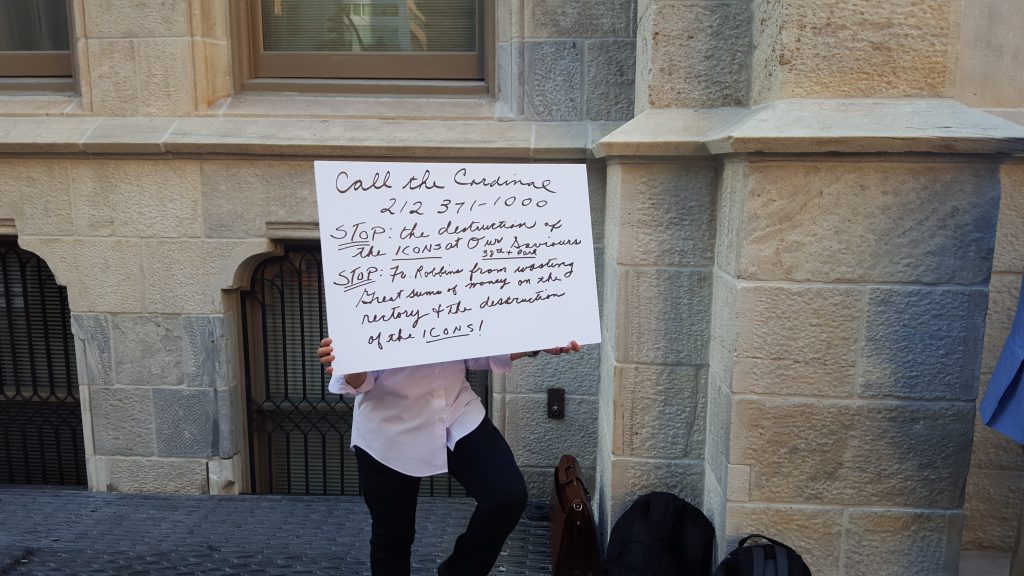 Call the Cardinal
212 371-1000
STOP: the destruction of
the ICONS at Our Saviours
38th + Park
STOP: Fr. Robbins from wasting
Great sums of money on the
rectory & the destruction
of the ICONS!